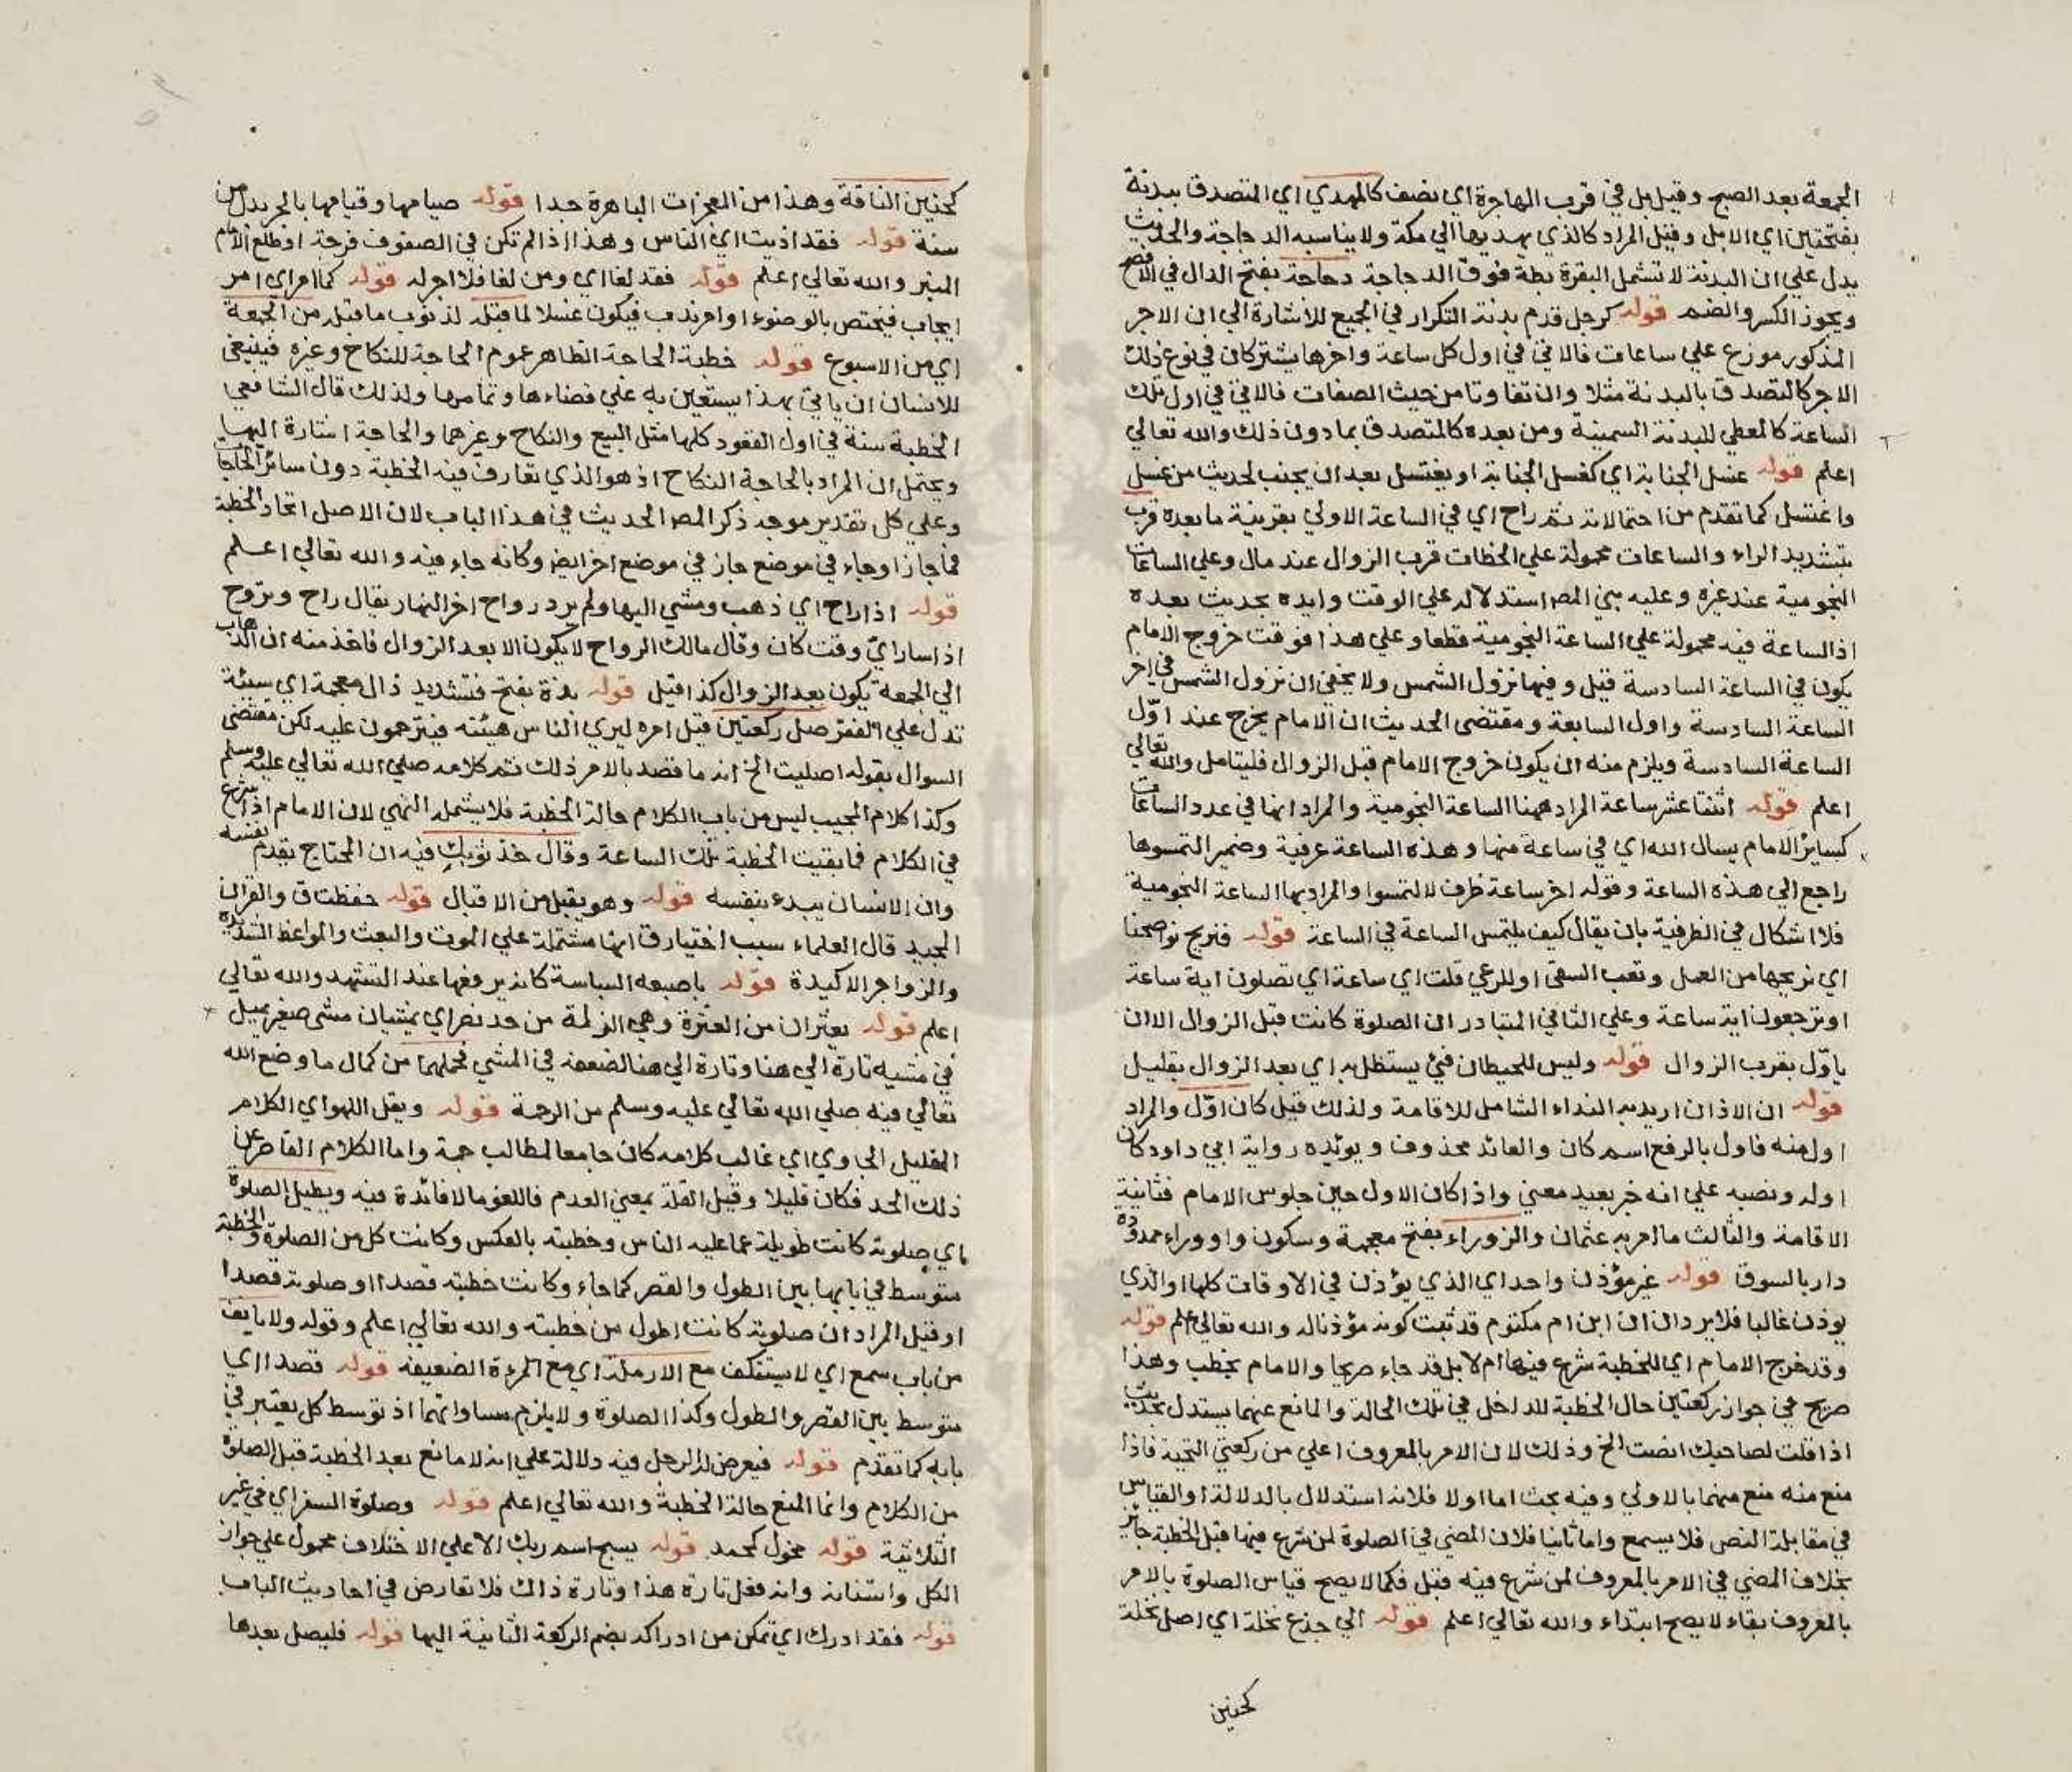 الجمعة بعد الصبح وقيل بل في قرب الهاجرة اي نصف كالمهدي اي المتصدق ببدنة
بفتحتين اي الابل وقيل المراد كالذي يهديها الي مكة ولا يناسبه الدجاجة والحديث
يدل علي ان البدنة لا تشمل البقرة بطة فوق الدجاجة دجاجة بفتح الدال في الافصح
ويجوز الكسر والضم قوله كرجل قدم بدنة التكرار في الجميع للاشارة الي ان الاجر
المذكور موزع علي ساعات فالاتي في اول كل ساعة واخرها يشتركان في نوع ذلك
الاجر كالتصدق بالبدنة مثلا وان تفاوتا من حيث الصفات فالاتي في اول تلك
الساعة كالمعطي للبدنة السمينة ومن بعده كالمتصدق بما دون ذلك والله تعالي
اعلم قوله غسل الجنابة اي كغسل الجنابة او يغتسل بعد ان يجنب لحديث من غسل
واغتسل كما تقدم من احتمالاته ثم راح اي في الساعة الاولي بقرينة ما بعده قرب
بتشديد الراء والساعات محمولة علي لحظات قرب الزوال عند مال وعلي الساعات
النجومية عند غيره وعليه بني المصـ استدلاله علي الوقت وايده بحديث بعده
اذ الساعة فيه محمولة علي الساعة النجومية قطعا وعلي هذا فوقت خروج الامام
يكون في الساعة السادسة قيل وفيها نزول الشمس ولا يخفي ان نزول الشمس في اخر
الساعة السادسة واول السابعة ومقتضي الحديث ان الامام يخرج عند اوّل
الساعة السادسة ويلزم منه ان يكون خروج الامام قبل الزوال فليتامل والله تعالي
اعلم قوله اثنتا عشر ساعة المراد ههنا الساعة النجومية والمراد انها في عدد الساعات
كساير الايام يسال الله اي في ساعة منها وهذه الساعة عرفية وضمير التمسوها
راجع الي هذه الساعة وقوله اخر ساعة ظرف لالتمسوا والمراد بها الساعة النجومية
فلا اشكال في الظرفية بان يقال كيف يلتمس الساعة في الساعة قوله فنريح نواضحنا
اي نريحها من العمل وتعب السقي او للرعي قلت اي ساعة اي تصلون اية ساعة
او ترجعون اية ساعة وعلي الثاني المتبادر ان الصلوة كانت قبل الزوال الا ان
ياوّل بقرب الزوال قوله وليس للحيطان فيئ يستظل به اي بعد الزوال بقليل
قوله ان الاذان اريد به النداء الشامل للاقامة ولذلك قيل كان اوّل والمراد
اول منه فاول بالرفع اسم كان والعائد محذوف ويوئده رواية ابي داود كان
اوله ونصبه علي انه خبر بعيد معني واذا كان الاول حين جلوس الامام فثانية
الاقامة والثالث ما امر به عثمان والزوراء بفتح معجمة وسكون واو وراء ممدودة
دار بالسوق قوله غير مؤذن واحد اي الذي يؤذن في الاوقات كلها او الذي
يوذن غالبا فلا يرد ان ابن ام مكتوم قد ثبت كونه مؤذنا له والله تعالي اعلم قوله
وقد خرج الامام اي للخطبة شرع فيها ام لا بل قد جاء صريحا والامام يخطب وهذا
صريح في جواز ركعتين حال الخطبة للداخل في تلك الحالة والمانع عنهما يستدل بحديث
اذا قلت لصاحبك انصت الخ وذلك لان الامر بالمعروف اعلي من ركعتي التحية فاذا
منع منه منع منهما بالاولي وفيه بحث اما اولا فلانه استدلال بالدلالة او القياس
في مقابلة النص فلا يسمع واما ثانيا فلان المضي في الصلوة لمن شرع فيها قبل الخطبة جائز
بخلاف المضي في الامر بالمعروف لمن شرع فيه قبل فكما لا يصح قياس الصلوة بالامر
بالمعروف بقاء لا يصح ابتداء والله تعالي اعلم قوله الي جذع نخلة اي اصل نخلة
كحنين
كحنين الناقة وهذا من المعجزات الباهرة جدا قوله صيامها وقيامها بالجر بدل من
سنة قوله فقد اذيت اي الناس وهذا اذا لم تكن في الصفوف فرجة او طلع الامام
المنبر والله تعالي اعلم قوله فقد لغا اي ومن لغا فلا اجر له قوله كما امر اي امر
ايجاب فيختص بالوضوء او امر ندب فيكون غسلا لما قبله لذنوب ما قبله من الجمعة
اي من الاسبوع قوله خطبة الحاجة الظاهر عموم الحاجة للنكاح وغيره فينبغي
للانسان ان ياتي بهذا يستعين به علي قضاءها وتمامها ولذلك قال الشافعي
الخطبة سنة في اول العقود كلها مثل البيع والنكاح وغيرهما والحاجة اشارة اليها
ويحتمل ان المراد بالحاجة النكاح اذ هو الذي تعارف فيه الخطبة دون سائر الحاجات
وعلي كل تقدير موجه ذكر المصـ الحديث في هذا الباب لان الاصل اتحاد الخطبة
فما جاز او جاء في موضع جاز في موضع اخر ايضا وكانه جاء فيه والله تعالي اعلم
قوله اذا راح اي ذهب ومشي اليها ولم يرد رواح اخر النهار يقال راح وتروح
اذا سار ايّ وقت كان وقال مالك الرواح لا يكون الا بعد الزوال فاخذ منه ان الذهاب
الي الجمعة يكون بعد الزوال كذا قيل قوله بذة بفتح فتشديد ذال معجمة اي سيئة
تدل علي الفقر صل ركعتين قيل امره ليري الناس هيئته فيترحمون عليه لكن مقتضي
السوال بقوله اصليت الخ انه ما قصد بالامر ذلك ثم كلامه صلي الله تعالي عليه وسلم
وكذا كلام المجيب ليس من باب الكلام حالة الخطبة فلا يشمله النهي لان الامام اذا شرع
في الكلام فما بقيت الخطبة تلك الساعة وقال خذ ثوبك فيه ان المحتاج يقدم نفسه
وان الانسان يبدء بنفسه قوله وهو يقبل من الاقبال قوله حفظت ق والقران
المجيد قال العلماء سبب اختيار ق انها مشتملة علي الموت والبعث والمواعظ الشديدة
والزواجر الاكيدة قوله باصبعه السبابة كانه يرفعها عند التشهد والله تعالي
اعلم قوله يعثران من العثرة وهي الزلة من حد نصر اي يمشيان مشي صغير يميل
في مشيه تارة الي هنا وتارة الي هنا لضعفه في المشي فحملهما من كمال ما وضع الله
تعالي فيه صلي الله تعالي عليه وسلم من الرحمة قوله ويقل اللهو اي الكلام
القليل الجاوي اي غالب كلامه كان جامعا لمطالب جمة واما الكلام القاصر عن
ذلك الحد فكان قليلا وقيل القلة بمعني العدم فاللغو ما لا فائدة فيه ويطيل الصلوة
اي صلوته كانت طويلة عما عليه الناس وخطبته بالعكس وكانت كل من الصلوة والخطبة
متوسط في بابها بين الطول والقصر كما جاء وكانت خطبته قصدا وصلوته قصدا
او قيل المراد ان صلوته كانت اطول من خطبته والله تعالي اعلم وقوله ولا يانف
من باب سمع اي لا يستنكف مع الارملة اي مع المرءة الضعيفة قوله قصدا اي
متوسط بين القصر والطول وكذا الصلوة ولا يلزم مساواتهما اذ توسط كل يعتبر في
بابه كما تقدم قوله فيعرض له الرجل فيه دلالة علي انه لا مانع بعد الخطبة قبل الصلوة
من الكلام وانما المنع حالة الخطبة والله تعالي اعلم قوله وصلوة السفر اي في غير
الثلاثية قوله مخول كمحمد قوله بسبح اسم ربك الاعلي الاختلاف محمول علي جواز
الكل واستنانه وانه فعل تارة هذا وتارة ذاك فلا تعارض في احاديث الباب
قوله فقد ادرك اي تمكن من ادراكه بضم الركعة الثانية اليها قوله فليصل بعدها